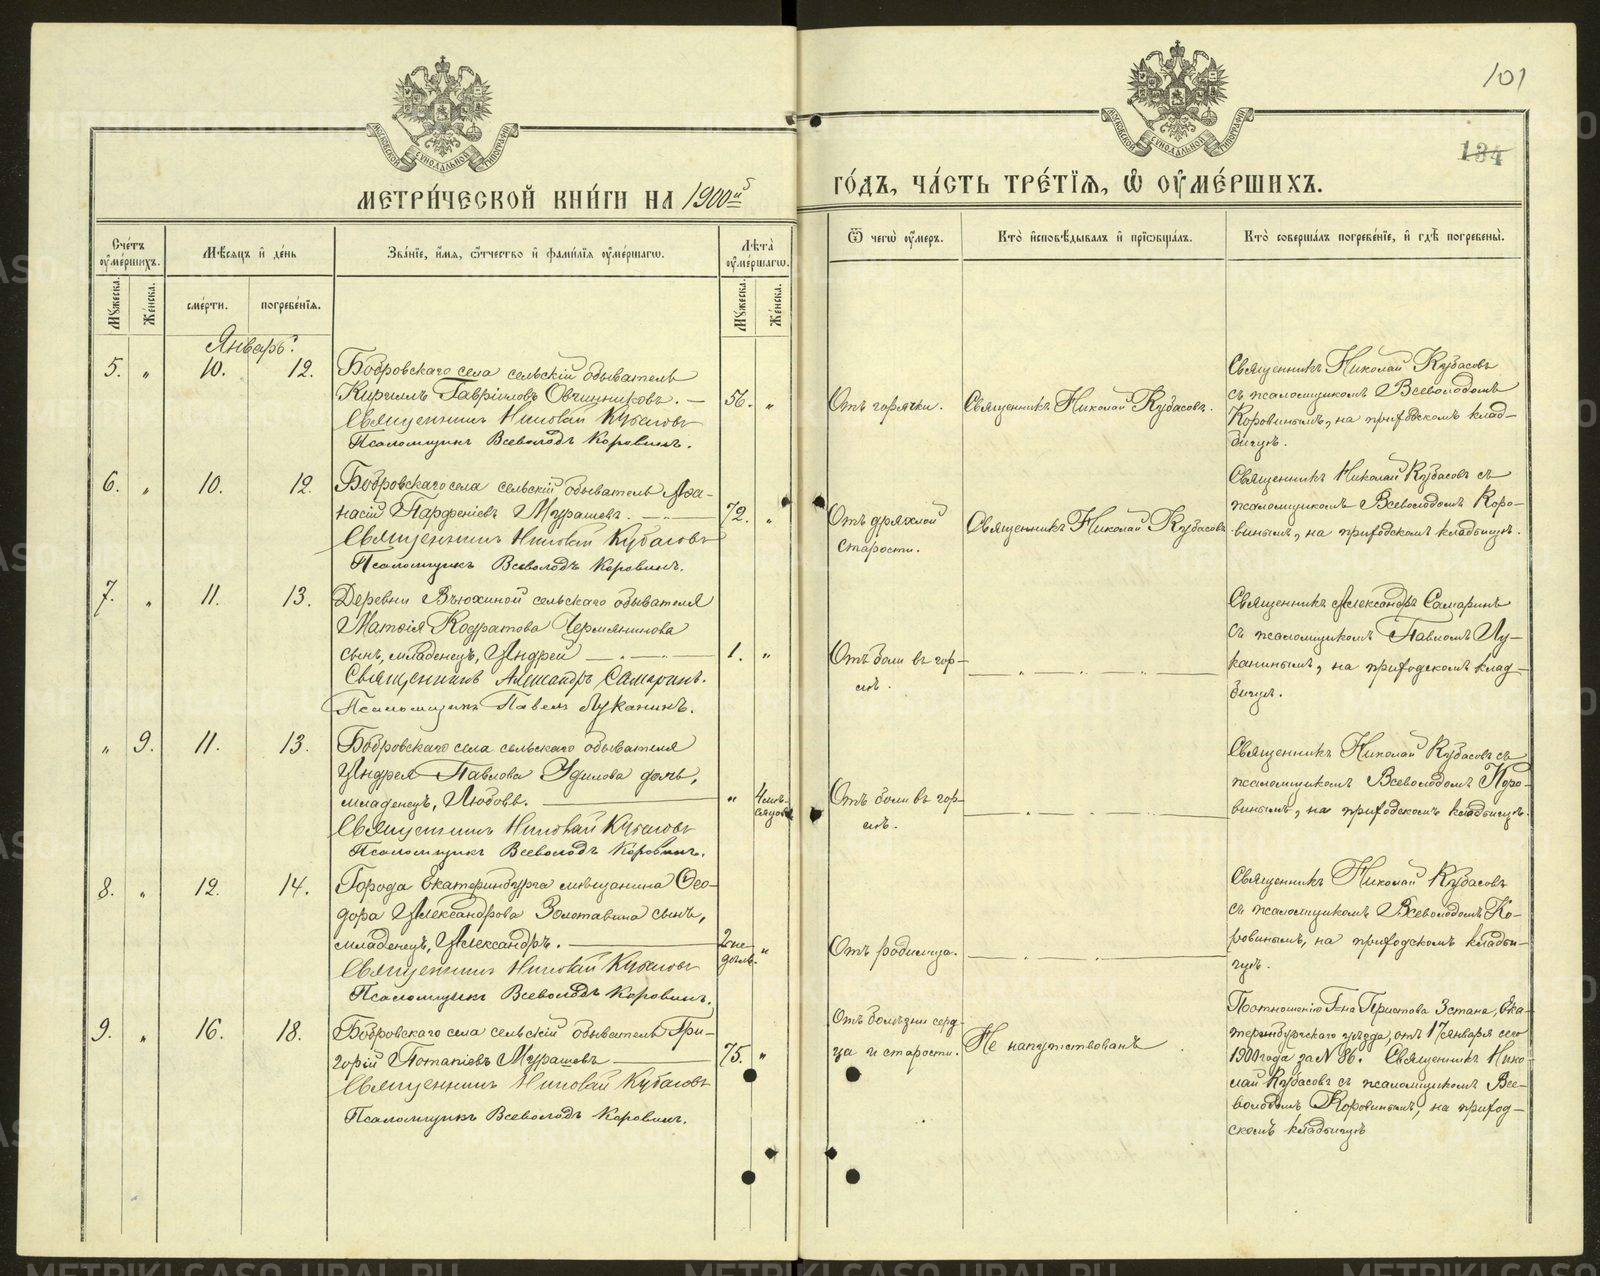 101
134
МОСКОВСКОЙ СѴНОДАЛЬНОЙ ТИПОГРАФІИ
МОСКОВСКОЙ СѴНОДАЛЬНОЙ ТИПОГРАФІИ
МЕТРИ́ЧЕСКОЙ КНИ́ГИ НА 1900й
ГО́ДЪ, ЧА́СТЬ ТРЕ́ТІЯ, Ѡ ОУ҆МЕ́РШИХЪ.
Сче́тъ оу҆ме́ршихъ.
Мꙋ́жеска.
Же́нска.
Мѣ́сяцъ и҆ де́нь
сме́рти.
погребе́нія.
Зва́ніе, и҆́мя, ѻ҆́тчество и҆ фами́лія оу҆ме́ршагѡ.
Лѣ́та оу҆ме́ршагѡ.
Мꙋ́жеска.
Же́нска.
Ѿ чегѡ̀ оу҆́меръ.
Кто̀ и҆сповѣ́дывалъ и҆ прїѡбща́лъ.
Кто̀ соверша́лъ погребе́ніе, и҆ гдѣ̀ погребены̀.
Январь.
5. " 10. 12. Бобровскаго села сельскій обыватель
Кириллъ Гавріиловъ Овчинниковъ. — 56. "
Священникъ Николай Кубасовъ
Псаломщикъ Всеволодъ Коровинъ.
Отъ горячки.
Священникъ Николай Кубасовъ.
Священникъ Николай Кубасовъ
съ псаломщикомъ Всеволодомъ
Коровинымъ, на приходскомъ клад-
бищѣ.
6. " 10. 12. Бобровскаго села сельскій обыватель Аѳа-
насій Парфеніевъ Мурашевъ. — 72. "
Священникъ Николай Кубасовъ
Псаломщикъ Всеволодъ Коровинъ.
Отъ дряхлой
старости.
Священникъ Николай Кубасовъ
Священникъ Николай Кубасовъ съ
псаломщикомъ Всеволодомъ Коро-
винымъ, на приходскомъ кладбищѣ.
7. " 11. 13. Деревни Вьюхиной сельскаго обывателя
Матѳія Кодратова Чермянинова
сынъ, младенецъ, Андрей — 1. "
Священникъ Александръ Самаринъ.
Псаломщикъ Павелъ Луканинъ.
Отъ боли въ гор-
лѣ.
Священникъ Александръ Самаринъ
съ псаломщикомъ Павломъ Лу-
канинымъ, на приходскомъ клад-
бищѣ.
" 9. 11. 13. Бобровскаго села сельскаго обывателя
Андрея Павлова Удилова дочь,
младенецъ, Любовь. — " 4 мѣ-
сяцовъ
Священникъ Николай Кубасовъ
Псаломщикъ Всеволодъ Коровинъ.
Отъ боли въ гор-
лѣ.
Священникъ Николай Кубасовъ съ
псаломщикомъ Всеволодомъ Коро-
винымъ, на приходскомъ кладбищѣ.
8. " 12. 14. Города Екатеринбурга мѣщанина Ѳео-
дора Александрова Золотавина сынъ,
младенецъ, Александръ. — 2 не-
дѣль. "
Священникъ Николай Кубасовъ
Псаломщикъ Всеволодъ Коровинъ.
Отъ родимца.
Священникъ Николай Кубасовъ
съ псаломщикомъ Всеволодомъ Ко-
ровинымъ, на приходскомъ кладби-
щѣ.
9. " 16. 18. Бобровскаго села сельскій обыватель Гри-
горій Потапіевъ Мурашевъ — 75. "
Священникъ Николай Кубасовъ
Псаломщикъ Всеволодъ Коровинъ.
Отъ болѣзни серд-
ца и старости.
Не напутствованъ
По отношенію Г-на Пристава 3 стана, Ека-
теринбургскаго уѣзда, отъ 17 января сего
1900 года за N 86. Священникъ Нико-
лай Кубасовъ съ псаломщикомъ Все-
володомъ Коровинымъ, на приход-
скомъ кладбищѣ
METRIKI.CASO-URAL.RU